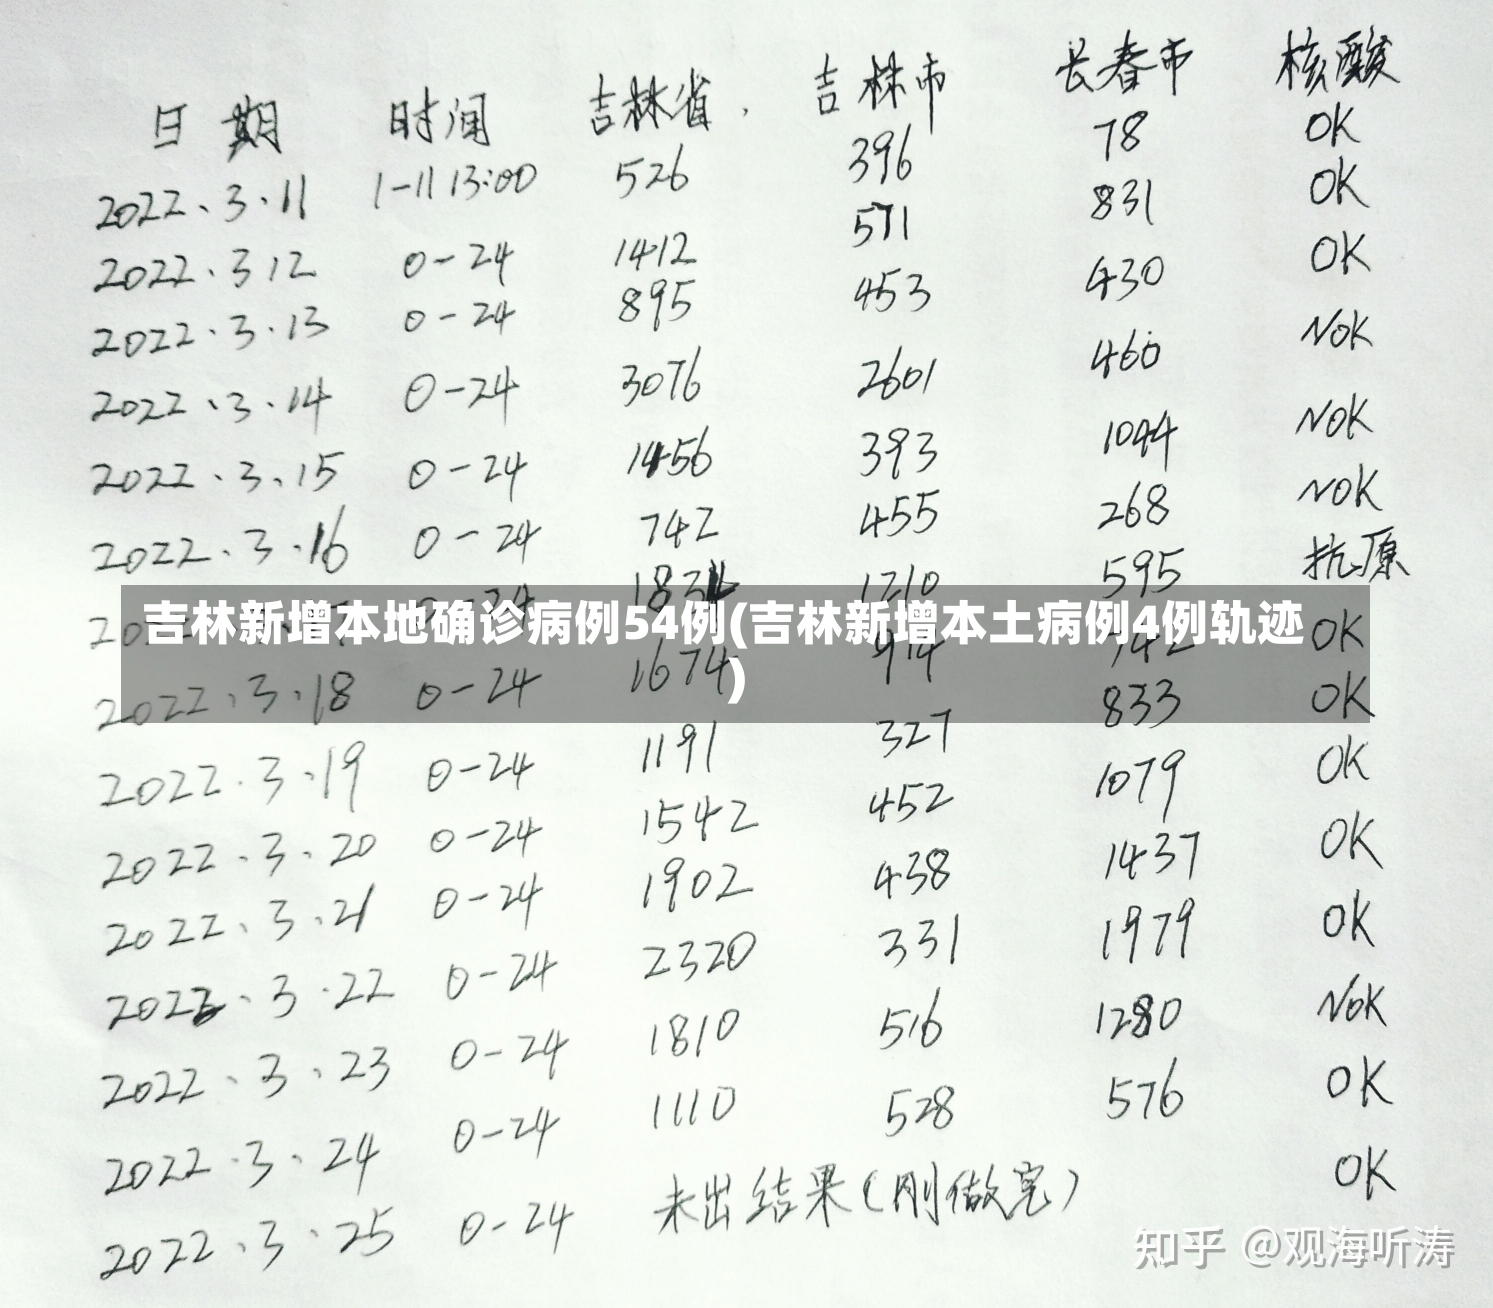 日期 时间 吉林省 吉林市 长春市 核酸
2022.3.11 1-11 13:00 526 396 78 OK
2022.3.12 0-24 1412 571 831 OK
2022.3.13 0-24 895 453 430 OK
2022.3.14 0-24 3076 2601 460 NOK
2022.3.15 0-24 1456 393 1044 NOK
2022.3.16 0-24 742 455 268 NOK
0-24 1834 1210 595 抗原
吉林新增本地确诊病例54例(吉林新增本土病例4例轨迹
)
2022.3.18 0-24 1674 914 742 OK
2022.3.19 0-24 1191 327 833 OK
2022.3.20 0-24 1542 452 1079 OK
2022.3.21 0-24 1902 438 1437 OK
2022.3.22 0-24 2320 331 1979 OK
2022.3.23 0-24 1810 516 1280 NOK
2022.3.24 0-24 1110 528 576 OK
2022.3.25 0-24 未出结果(刚做完) OK
知乎 @观海听涛